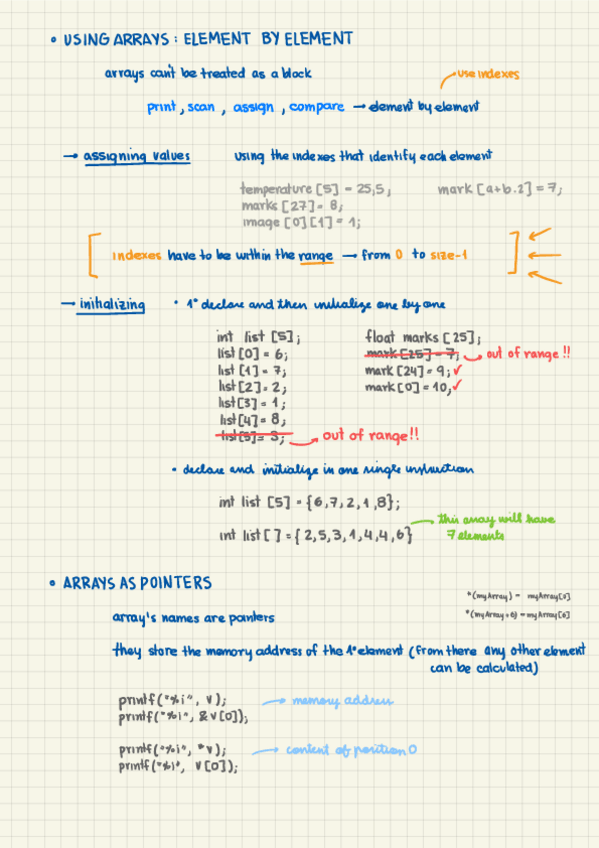 • USING ARRAYS: ELEMENT BY ELEMENT
arrays can't be treated as a block
use indexes
print, scan, assign, compare → element by element
→ assigning values using the indexes that identify each element
temperature [5] = 25,5; mark [a+b.2] = 7;
marks [27] = 8;
image [0][1] = 1;
[ indexes have to be within the range → from 0 to size-1 ]
→ initializing • 1° declare and then initialize one by one
int list [5]; float marks [25];
list [0] = 6; mark [25] = 7; out of range !!
list [1] = 7; mark [24] = 9; ✓
list [2] = 2; mark [0] = 10; ✓
list [3] = 1;
list [4] = 8;
list [5] = 3; out of range!!
• declare and initialize in one single instruction
int list [5] = {6,7,2,1,8};
this array will have
7 elements
int list [ ] = {2,5,3,1,4,4,6}
• ARRAYS AS POINTERS
*(myArray) = myArray[0]
array's names are pointers
*(myArray+6) = myArray[6]
they store the memory address of the 1° element (from there any other element
can be calculated)
printf("%i", v); → memory address
printf("%i", &v[0]);
printf("%i", *v); → content of position 0
printf("%i", v[0]);